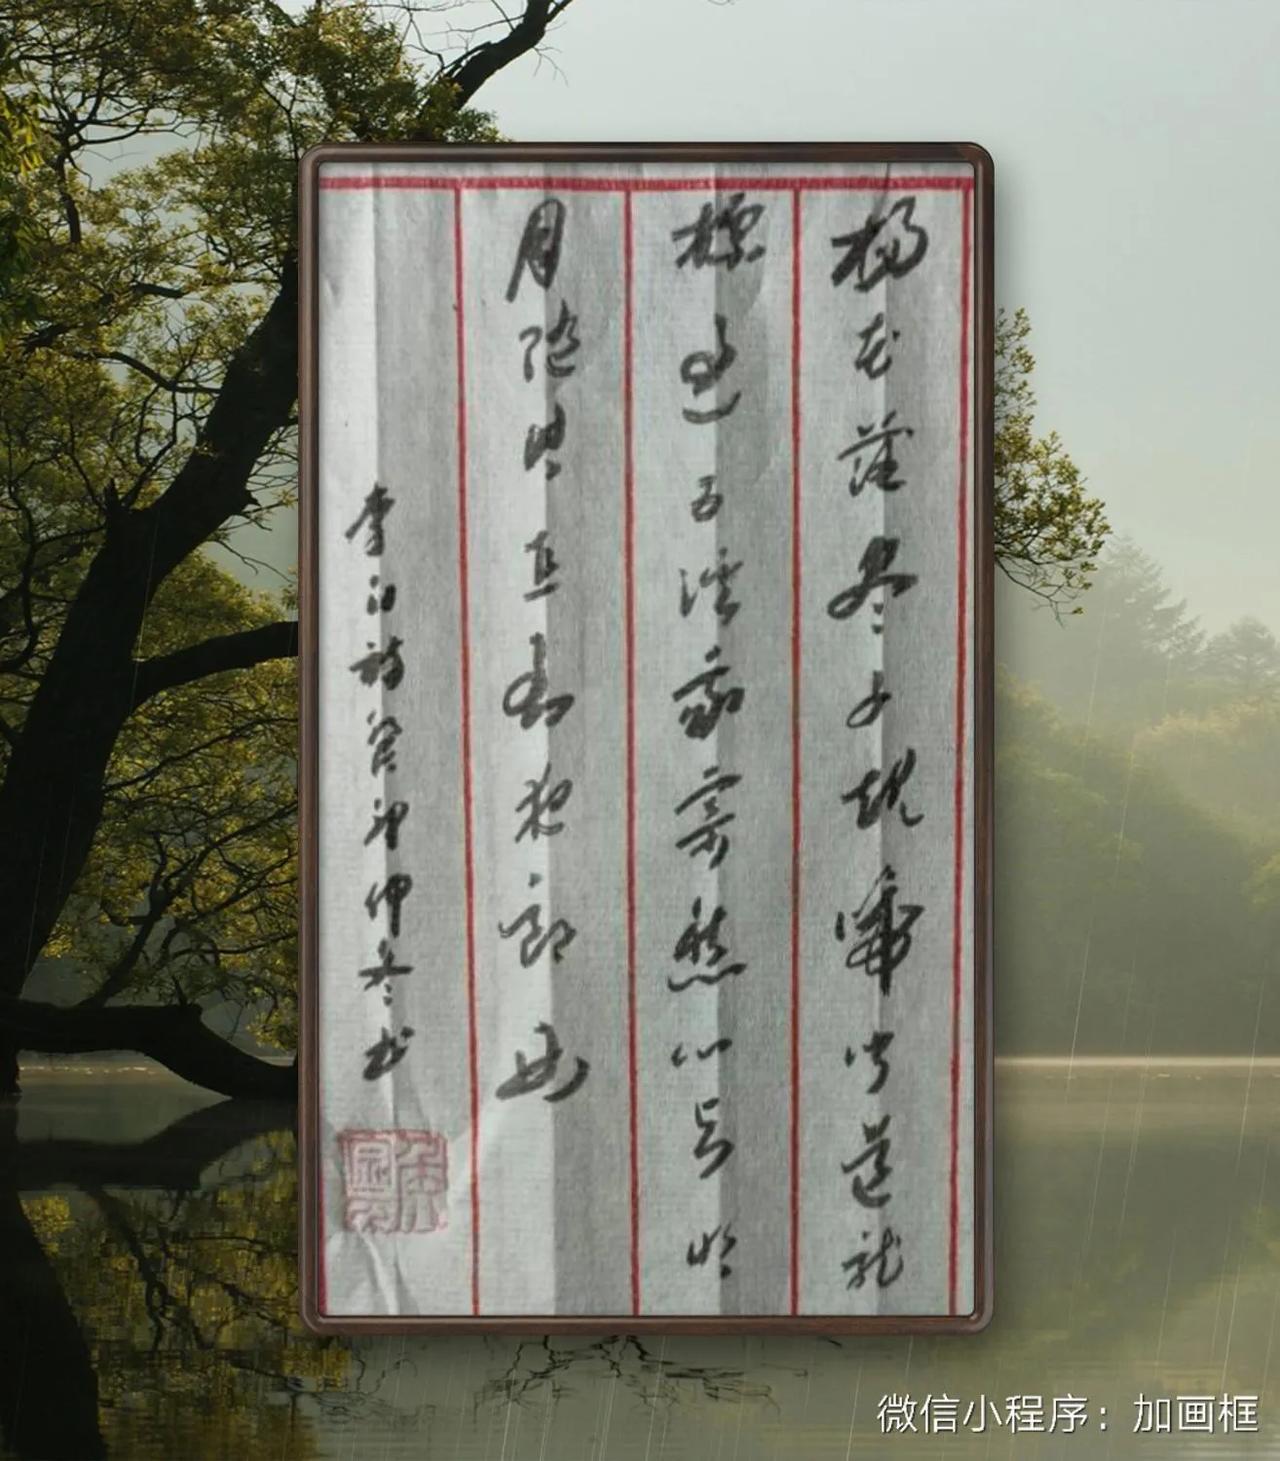 杨花落尽子规啼闻道龙
标过五溪我寄愁心与明
月随君直到夜郎西
李白诗癸卯仲冬书
微信小程序：加画框